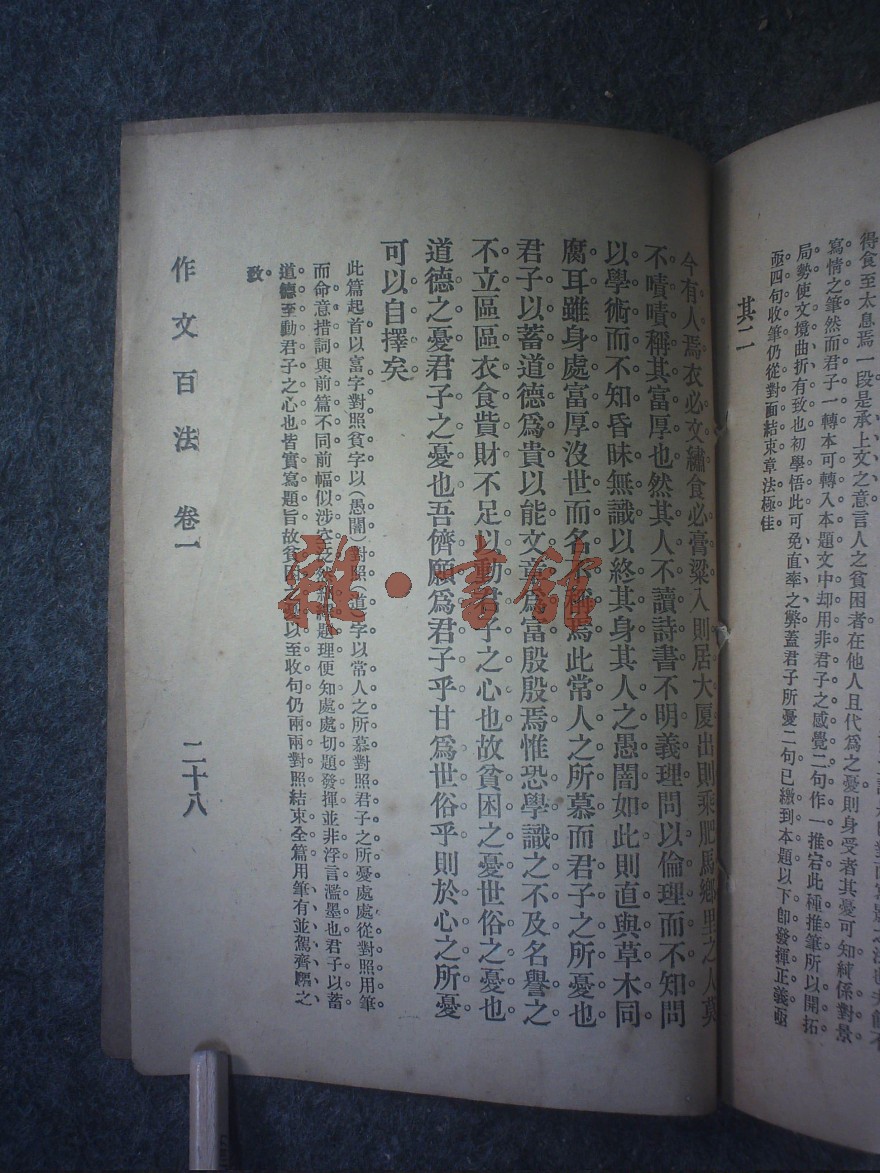 得食至太息焉一段是承上文之意言人之貧困者在他人且代爲之憂則身受者其憂可知純係對景
寫情之筆然而君子一轉本可轉入本題文中却用非君子之感覺二句作一推宕此種推筆所以開拓
局勢使文境曲折有致也初學悟此可免直率之弊蓋君子所憂二句已繳到本題以下卽發揮正義亟
亟四句收筆仍從對面結束章法極佳。
其二
今有人焉。衣必文繡。食必膏粱。入則居大廈。出則乘肥馬。鄉里之人。莫
不嘖嘖稱其富厚也。然其人不讀詩書。不明義理。問以倫理而不知。問
以學術而不知。昏昧無識。以終其身。其人之愚闇如此。則直與草木同
腐耳。雖身處富厚。沒世而名不稱焉。此常人之所慕。而君子之所憂也。
君子以蓄道德爲貴。以能文章爲富。殷殷焉惟恐學識之不及。名譽之
不立。區區衣食貲財。不足以動君子之心也。故貧困之憂。世俗之憂也。
道德之憂。君子之憂也。吾儕願爲君子乎。甘爲世俗乎。則於心之所憂。
可以自擇矣。
此篇起首以富字對照貧字以(愚闇)對照(道)字以常人之所慕對照君子之所憂處處從對照用筆
而命意措詞與前篇不同前幅似涉空泛然 題理便知處處切題發揮並非浮言濫墨也君子以蓄
道德至動君子之心也皆實寫題旨故貧困之 以至收句仍兩兩對照結束全篇用筆有並駕齊驅之
致。
作文百法 卷一 二十八
雜·書館